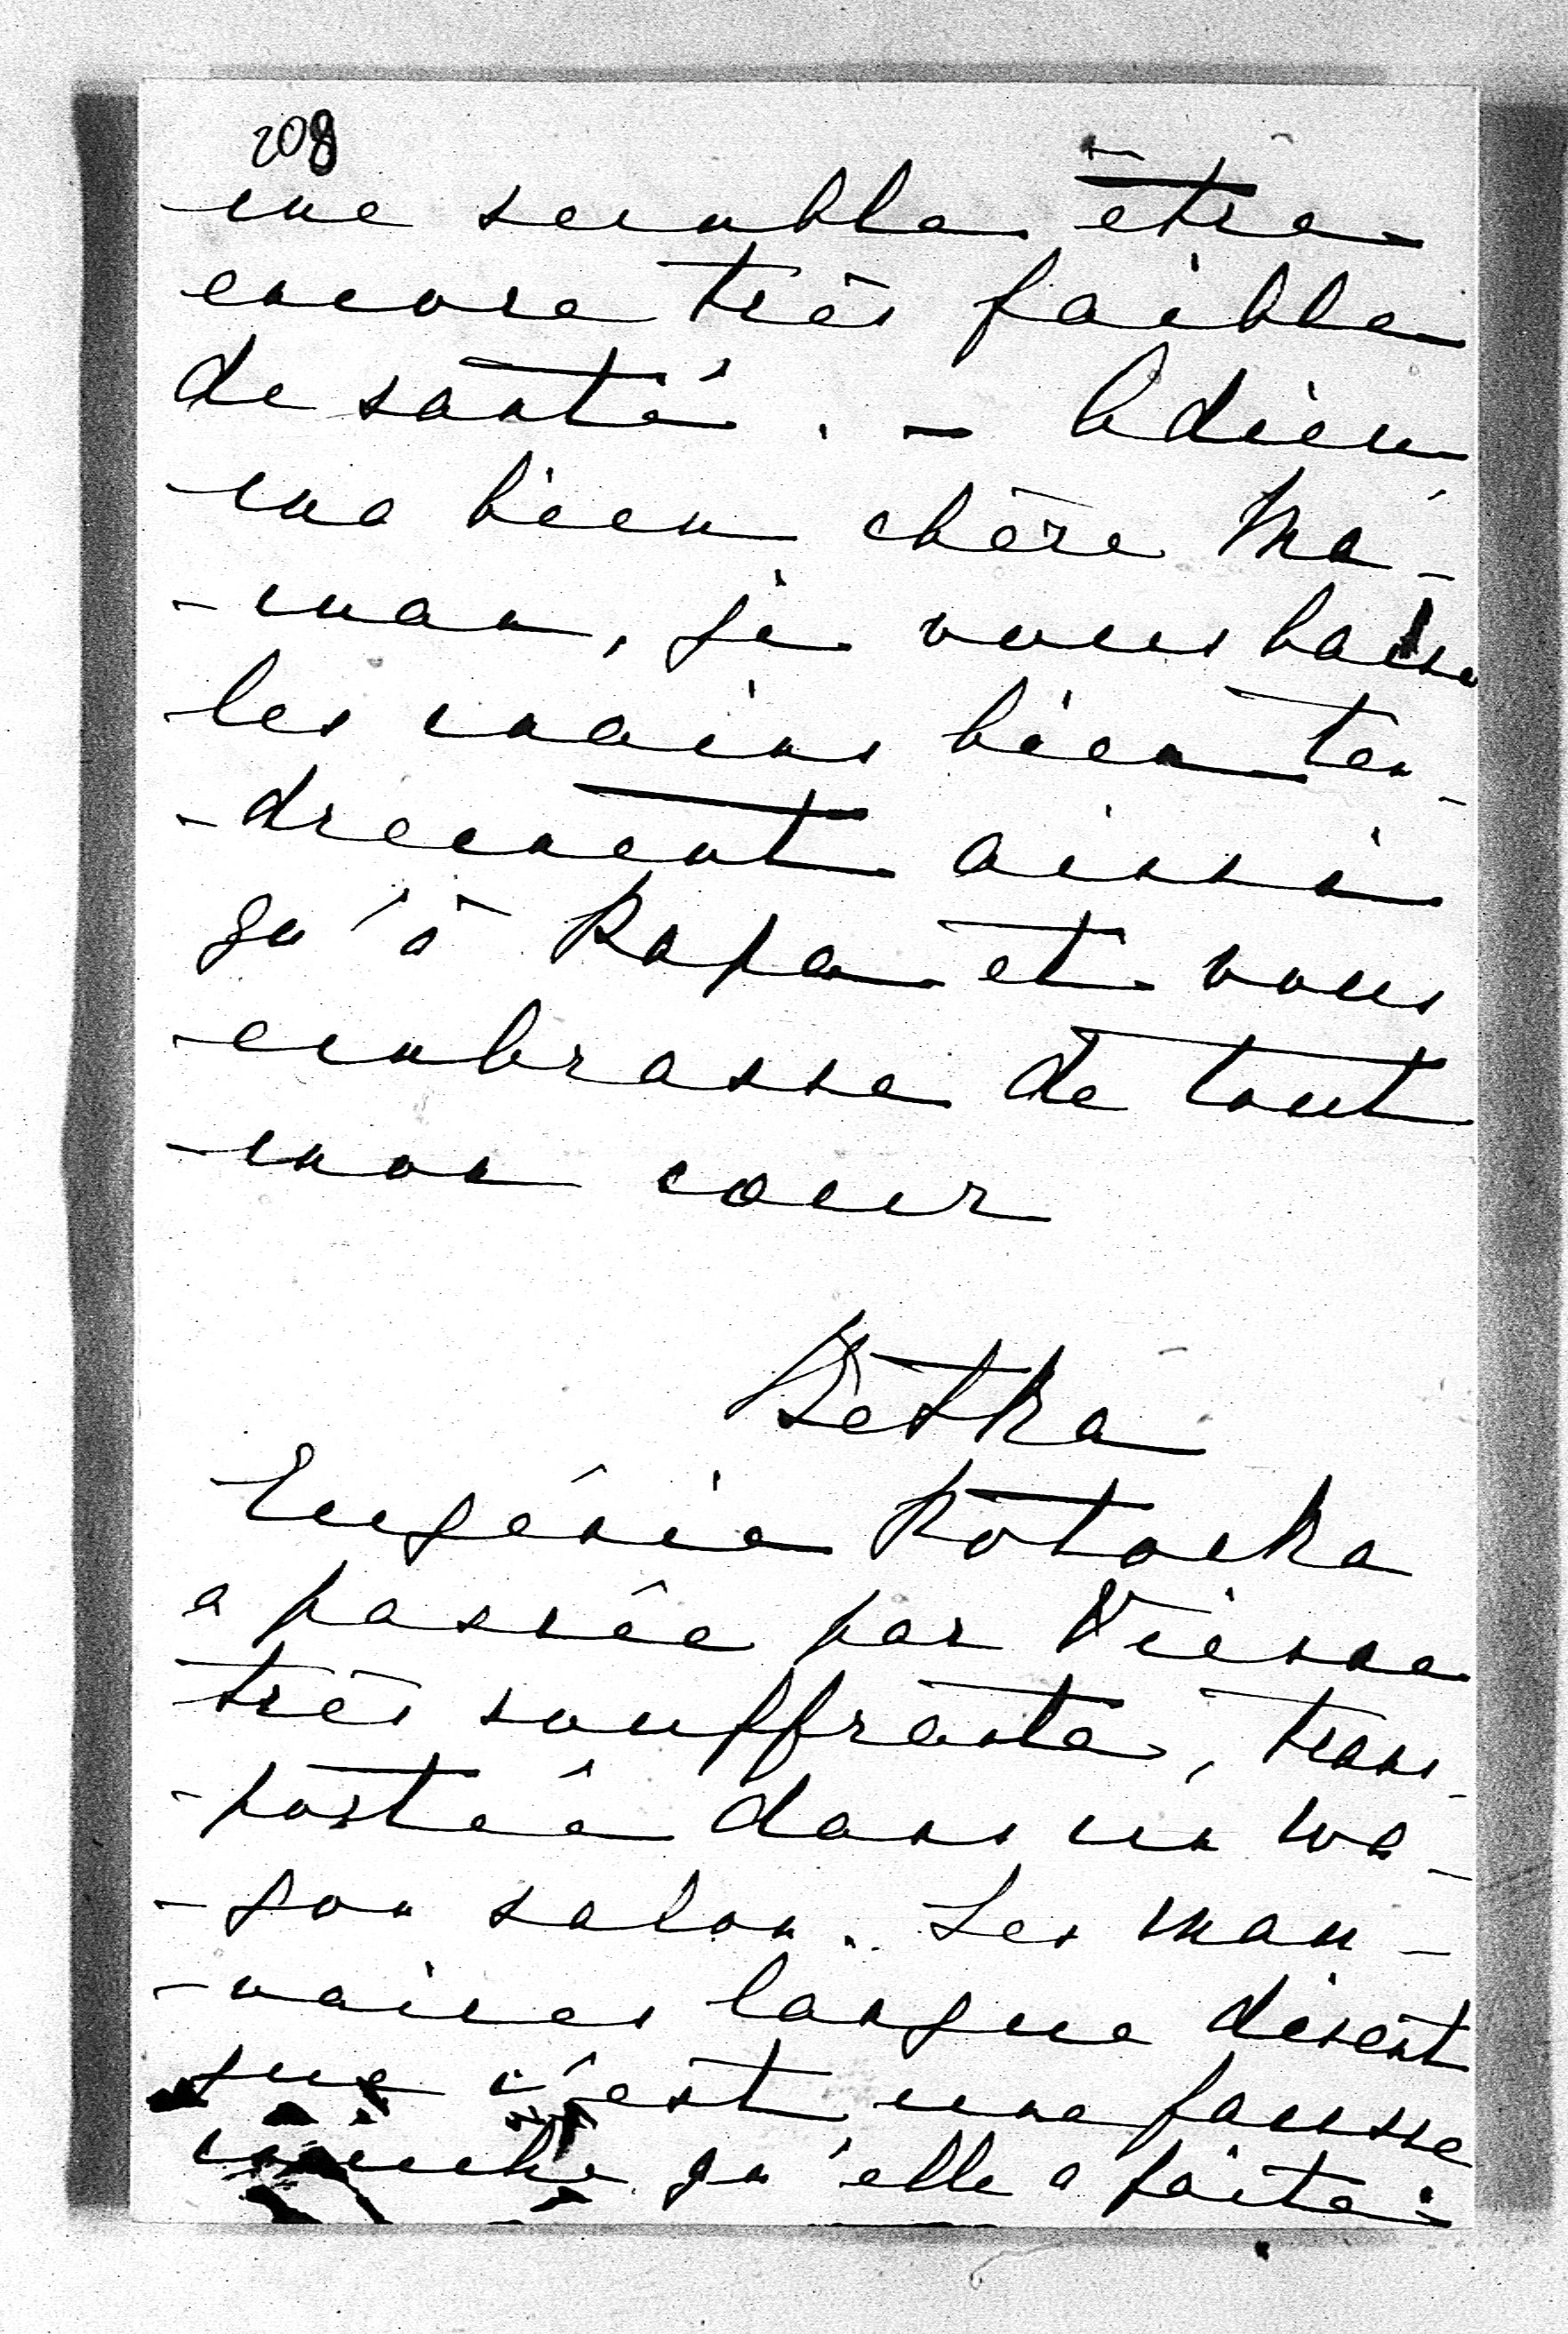 208
me semble être
encore très faible
de santé. - Adieu
ma bien chère Ma-
-man, je vous baise
les mains bien ten-
-drement ainsi
qu'à Papa et vous
embrasse de tout
mon coeur
Betka
Eugénie Potocka
a passée par Vienne
très souffrante, trans-
-portée dans un wa-
-gon salon. Les mau-
-vaises langue disent
que c'est une fausse
couche qu'elle a faite.